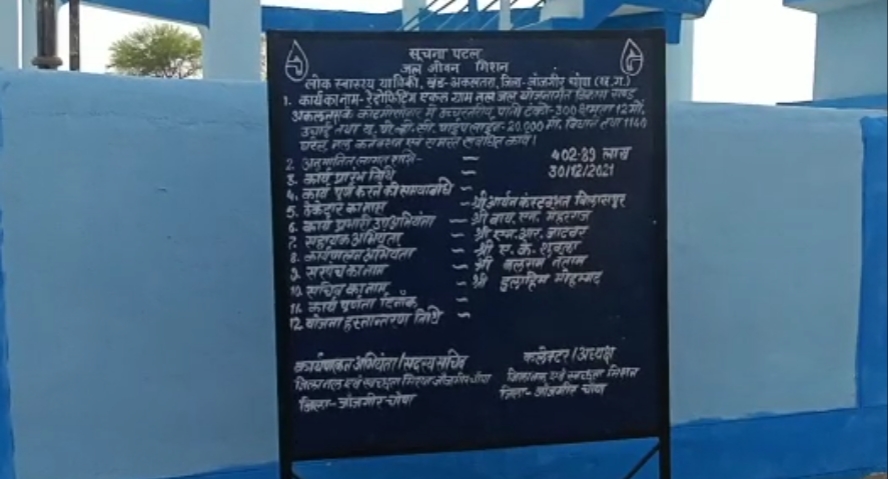 सूचना पटल
जल जीवन मिशन
लोक स्वास्थ्य यांत्रिकी, खंड-अकलतरा, जिला-जांजगीर चांपा (छ.ग.)
1. कार्य का नाम- रेट्रोफिटिंग एकल ग्राम नल जल योजनांतर्गत विकास खण्ड
अकलतरा के में उच्चस्तरीय पानि टंकी-300 क्षमता 12 मी.
ऊंचाई तथा यू.पी.व्ही.सी. पाइप लाइन-20,000 मी. बिछाने तथा 1140
घरेलू नल कनेक्शन एवं समस्त संबंधित कार्य।
2. अनुमानित लागत राशि- – 402.89 लाख
3. कार्य प्रारंभ तिथि – 30/12/2021
4. कार्य पूर्ण करने की समयावधि –
5. ठेकेदार का नाम – श्री आर्यन कंस्ट्रक्शन बिलासपुर
6. कार्य प्रभारी उपअभियंता – श्री वाय. एन.
7. सहायक अभियंता – श्री एम. आर. जाटवर
8. कार्यपालन अभियंता – श्री ए. के. शुक्ला
9. सरपंच का नाम – श्री बलराम नेताम
10. सचिव का नाम – श्री मोहम्मद
11. कार्य पूर्णता दिनांक –
12. योजना हस्तान्तरण तिथि –
कार्यपालन अभियंता/सदस्य सचिव
जिला जल एवं स्वच्छता मिशन जाँजगीर चांपा
जिला-जाँजगीर-चांपा
कलेक्टर/अध्यक्ष
जिला जल एवं स्वच्छता मिशन
जिला-जाँजगीर चांपा